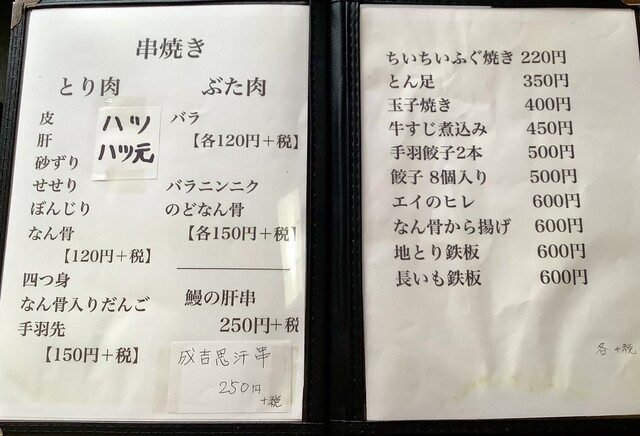 串焼き
とり肉
皮
肝
砂ずり
せせり
ぼんじり
なん骨
【120円＋税】
ハツ
ハツ元
四つ身
なん骨入りだんご
手羽先
【150円＋税】
ぶた肉
バラ
【各120円＋税】
バラニンニク
のどなん骨
【各150円＋税】
鰻の肝串
250円＋税
成吉思汗串
250円
＋税
ちいちいふぐ焼き 220円
とん足 350円
玉子焼き 400円
牛すじ煮込み 450円
手羽餃子2本 500円
餃子 8個入り 500円
エイのヒレ 600円
なん骨から揚げ 600円
地とり鉄板 600円
長いも鉄板 600円
各 ＋税